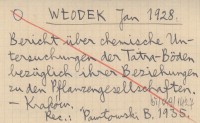 WŁODEK Jan 1928.
Bericht über chemische Un-
tersuchungen der Tatra-Böden
bezüglich ihrer Beziehungen
zu den Pflanzengesellschaften.
- Kraków.
Rec.: Pawłowski B. 1935.